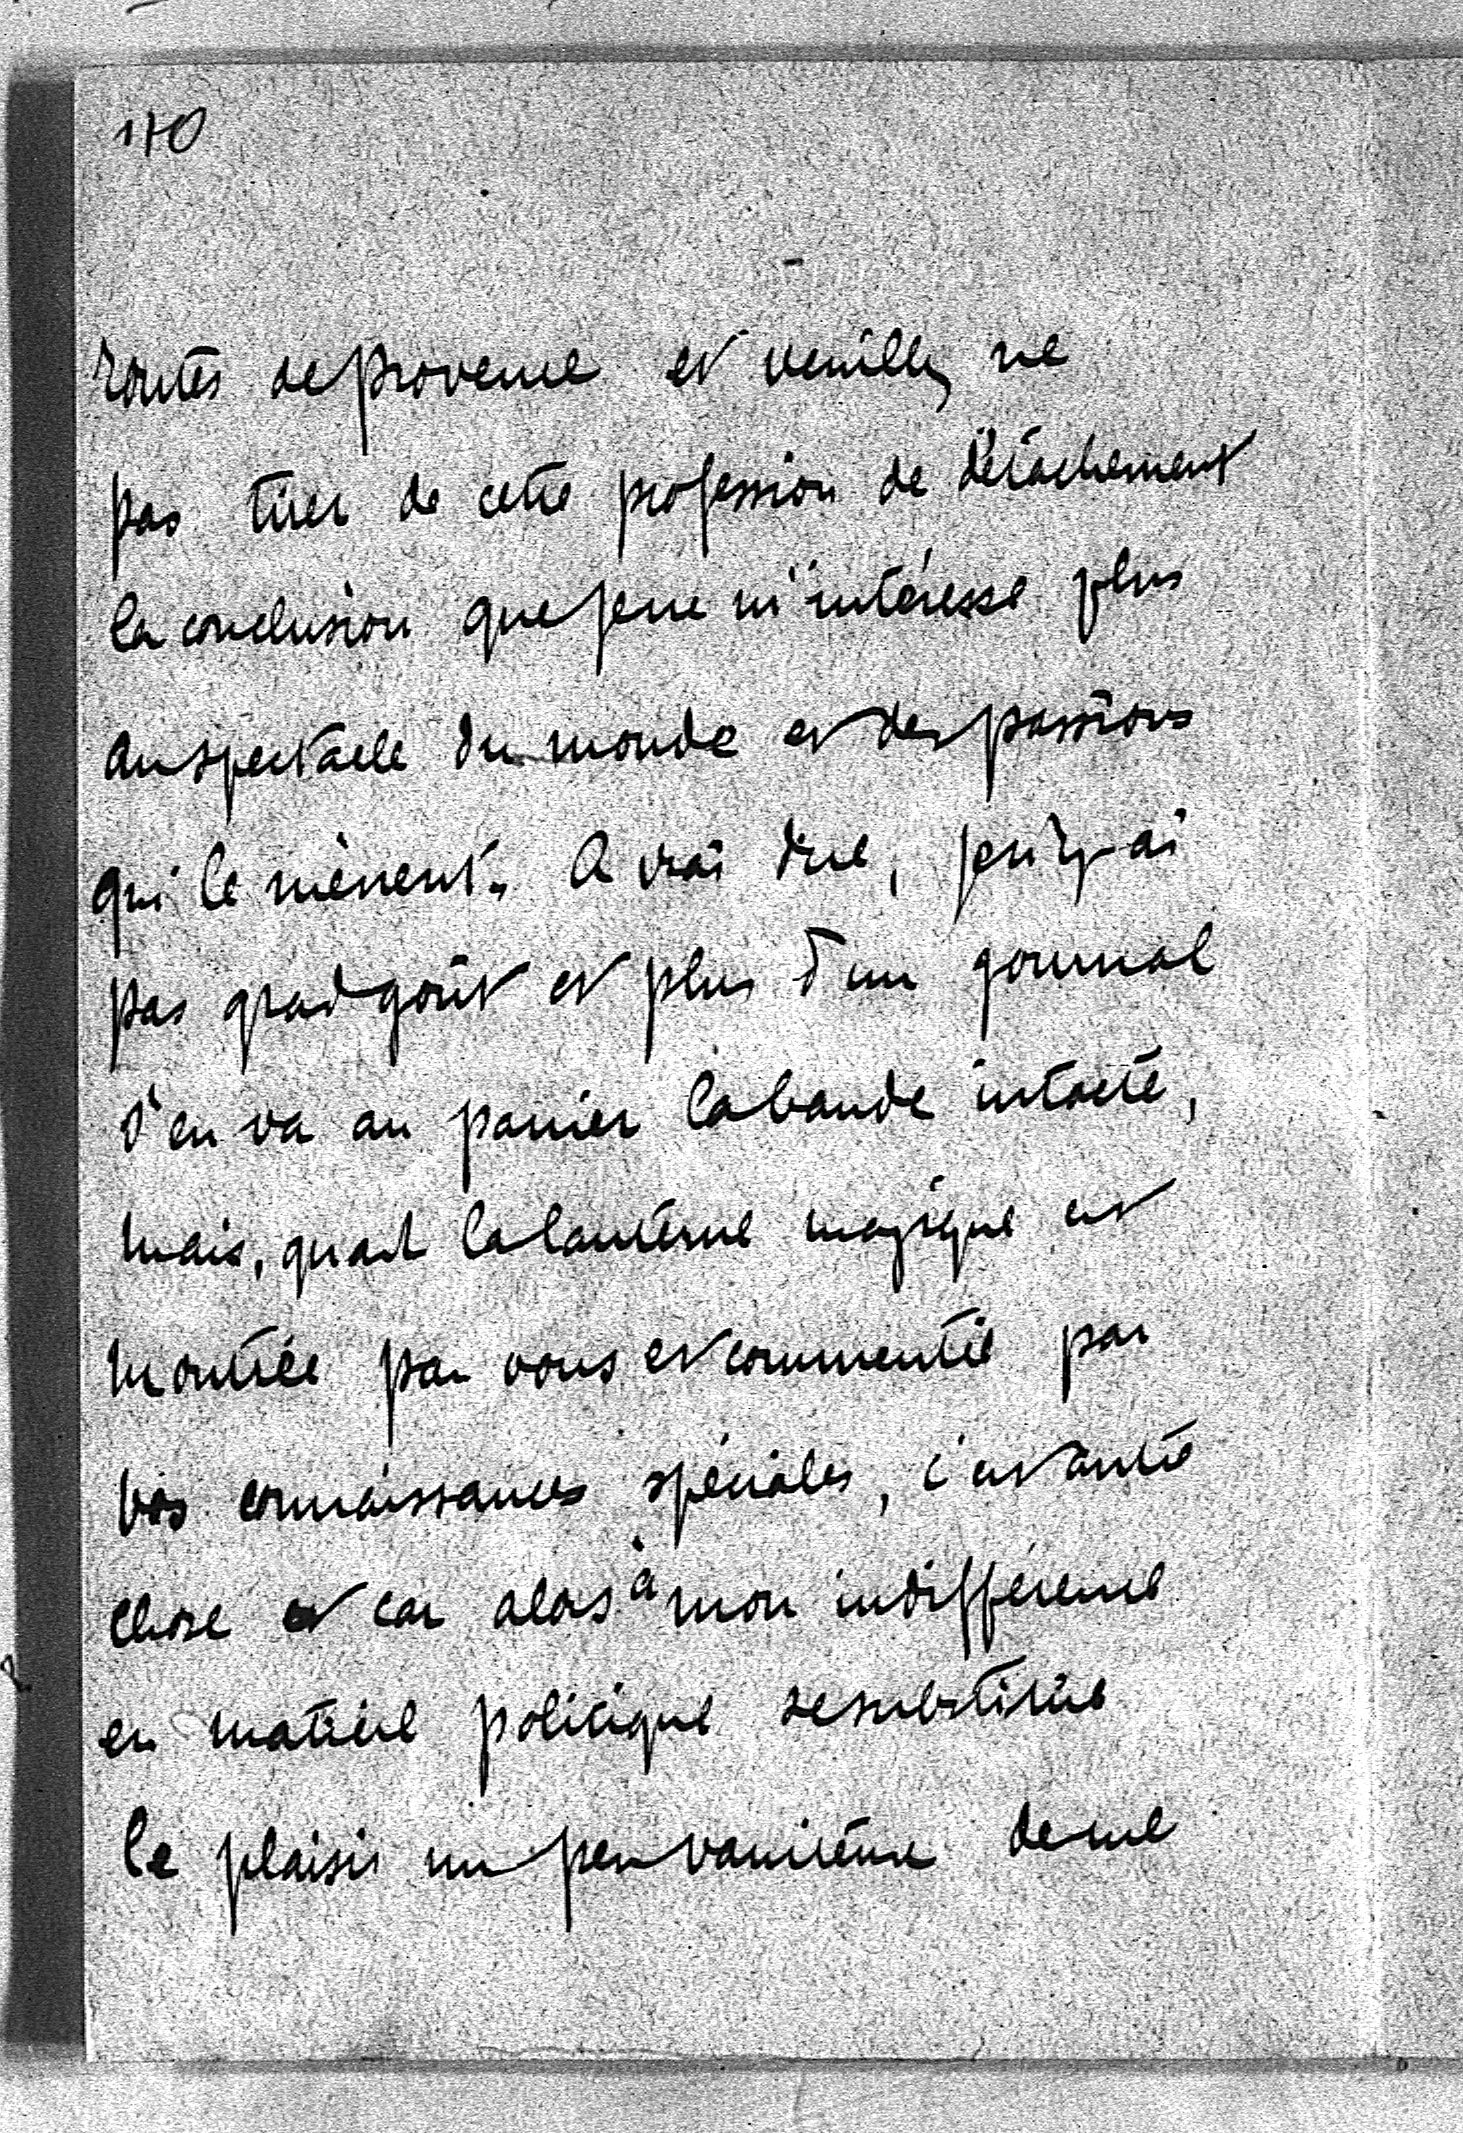 110
routes de provence et veuillez ne
pas tirer de cette profession de détachement
la conclusion que je ne m'intéresse plus
au spectacle du monde et des passions
qui le mènent. A vrai dire, je n'y ai
pas grand goût et plus d'un journal
s'en va au panier la bande intacte,
mais, quand la lanterne magique est
montrée par vous et commentée par
vos connaissances spéciales, c'est autre
chose et car alors à mon indifférence
en matière politique se substitue
le plaisir un peu vaniteux de me